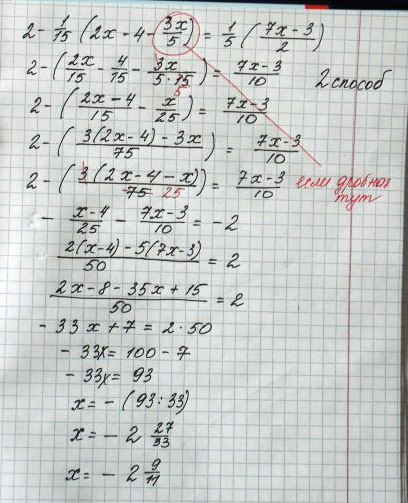 2 - 1/15 (2x - 4 - 3x/5) = 1/5 (7x-3/2)
2 - (2x/15 - 4/15 - 3x/5·15 5) = 7x-3/10 2 способ
2 - (2x-4/15 - x/25) = 7x-3/10
2 - (3(2x-4) - 3x/75) = 7x-3/10
2 - (3(2x-4-x)/75 25) = 7x-3/10 если дробная
тут
- x-4/25 - 7x-3/10 = -2
2(x-4) - 5(7x-3)/50 = 2
2x-8-35x+15/50 = 2
-33x+7 = 2·50
-33x = 100 - 7
-33x = 93
x = -(93:33)
x = -2 27/33
x = -2 9/11